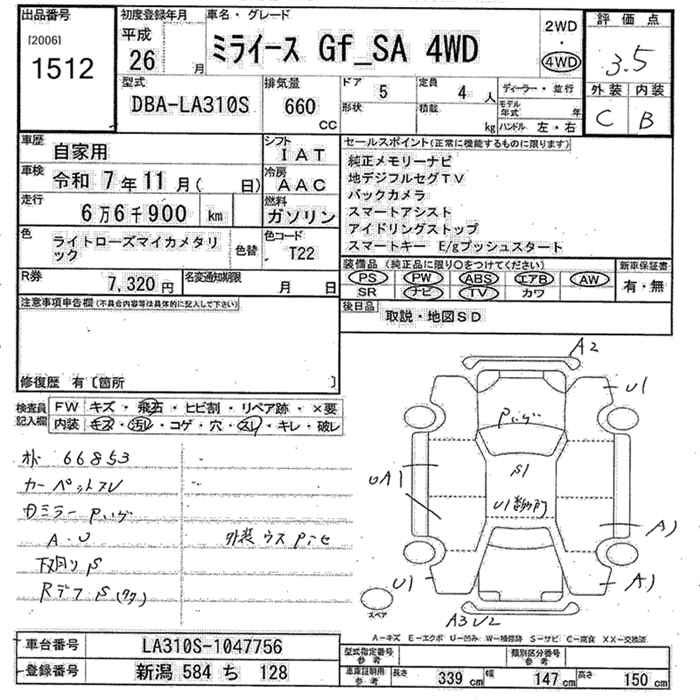 出品番号
[2006]
1512
初度登録年月
平成
26 月
車名・グレード
ミライース Gf_SA 4WD
2WD
・
4WD
評価点
3.5
外装 内装
C B
型式
DBA-LA310S
排気量
660
CC
ドア 5
形状
定員 4 人
積載 kg
ディーラー・並行
モデル年式 年
ハンドル 左・右
車歴
自家用
シフト
IAT
車検
令和 7年11月( 日)
冷房
AAC
走行
6万6千900 km
燃料
ガソリン
色
ライトローズマイカメタリック
色替
色コード
T22
R券
7,320円
名変通知期限
月 日
セールスポイント(正常に機能するものに限ります)
純正メモリーナビ
地デジフルセグTV
バックカメラ
スマートアシスト
アイドリングストップ
スマートキー E/gプッシュスタート
装備品 (純正品に限り〇をつけてください)
PS PW ABS エアB AW
SR ナビ TV カワ
新車保証書
有・無
後日品
取説・地図SD
注意事項申告欄(不具合内容等は具体的に記入して下さい)
修復歴 有〔箇所 〕
検査員
記入欄
FW キズ・飛石・ヒビ割・リペア跡・×要
内装 キズ・汚レ・コゲ・穴・スレ・キレ・破レ
66853
カーペットスレ
Dミラー
A・U
下廻りS
RデフS
外装ウス
A2
U1
S1
U1
UA1
A1
U1
A1
A3U2
スペア
A―キズ E―エクボ U―凹み W―補修跡 S―サビ C―腐食 XX―交換済
車台番号
LA310S-1047756
登録番号
新潟 584 ち 128
型式指定番号
参考
類別区分番号
参考
車庫証明用
参考
長さ 339 cm
幅 147 cm
高さ 150 cm